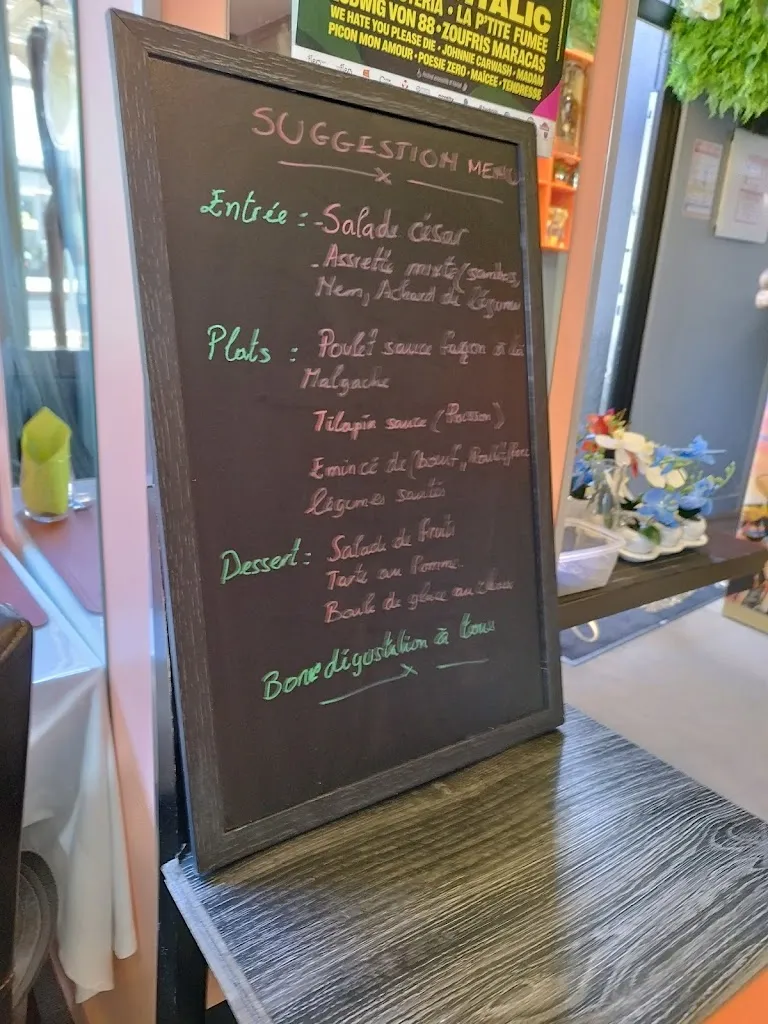 ITALIC
LUDWIG VON 88 · ZOUFRIS MARACAS
LA P'TITE FUMÉE
WE HATE YOU PLEASE DIE · JOHNNIE CARWASH · MADAM
PICON MON AMOUR · POESIE ZERO · MAÏCEE · TENDRESSE
SUGGESTION MENU
Entrée : - Salade césar
- Assiette mixte (sambos,
Nem, Achard de légumes
Plats : Poulet sauce façon à la
Malgache
Tilapia sauce (Poisson)
Emincé de (bœuf, Poulet)
légumes sautés
Dessert : Salade de fruits
Tarte au Pomme.
Boule de glace au choix
Bone dégustation à tous